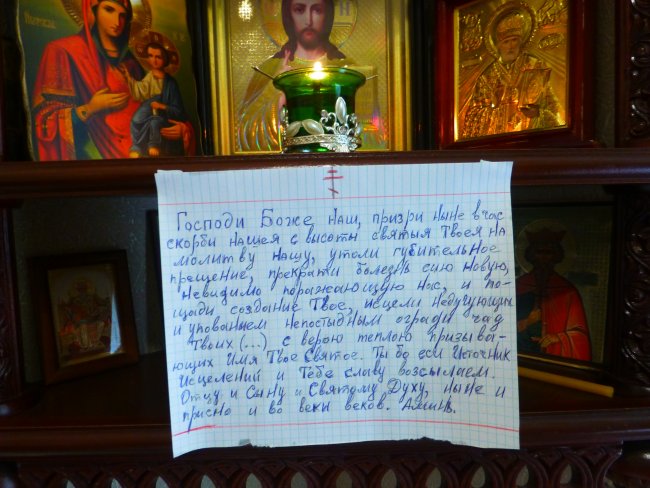 Господи Боже наш, призри ныне в час
скорби нашея с высоты святыя Твоея на
молитву нашу, утоли губительное
прещение прекрати болезнь сию новую,
невидимо поражающую нас, и по-
щади создание Твое, исцели недугующия
и упованием непостыдным огради чад
Твоих (...) с верою теплою призыва-
ющих Имя Твое Святое. Ты бо еси Источник
Исцелений и Тебе славу возсылаем.
Отцу и Сыну и Святому Духу, ныне и
присно и во веки веков. Аминь.